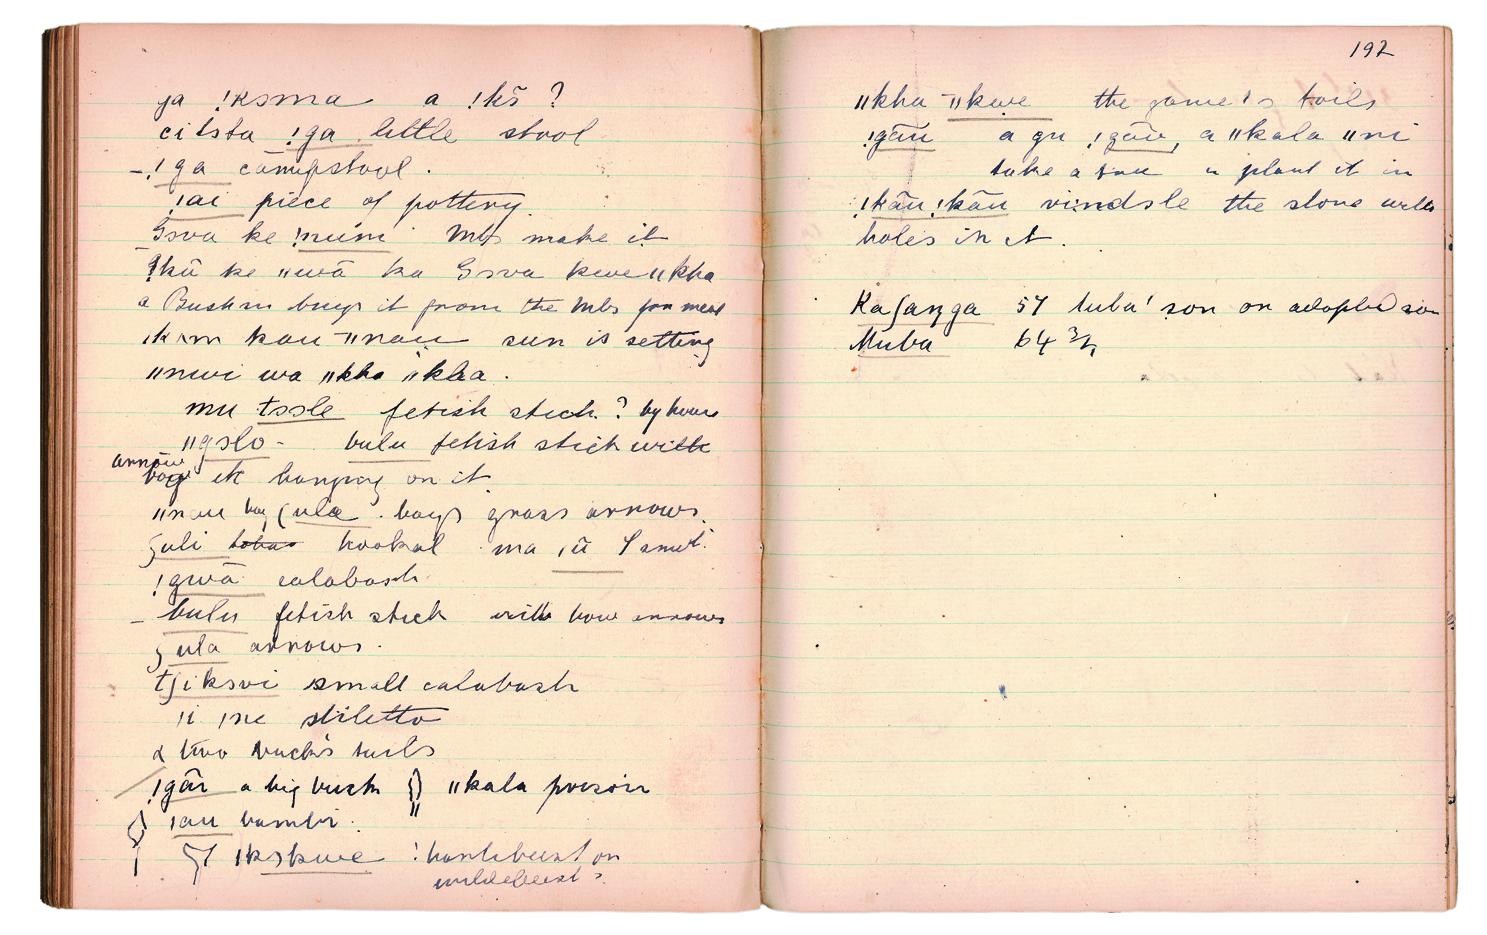 ga !kɔma a !kɔ̃ ?
citsta !ga little stool
– !ga campstool .
!ai piece of pottery.
Gɔva ke !nuim Mbs make it
!kũ ke ǁwã ka Gɔva kwe ǁkha
a Bushm buys it from the Mbs for meat
kam kau ǁnau sun is setting
ǁnwi wa ǁkha ǁkha .
mu tɔɔle fetish stick ? by house
ǁgɔlo - bulu fetish stick with
arrow
bag etc hanging on it
ǁnau boy ʃula . boys grass arrows.
ʒuli hookal ma ,ũ
!gwã calabash
– bulu fetish stick with bow arrows
ʒula arrows .
tʃikɔvi small calabash
ǀi ǀne stiletto
& two buck's tails
!gãi a big buck ǁkala poison
ǀau bambi .
ǀkɔkwe hartebeest or
wildebeest ?
192
ǁkha ǁkwe the game's tails
!gãu a gu !gãu, a ǁkala ǁni
take a plant it in
!kãu !kãu vindsle the stone with
holes in it .
Kaʃaŋga 57 luba' son or adopted son
Muba 64 ¾